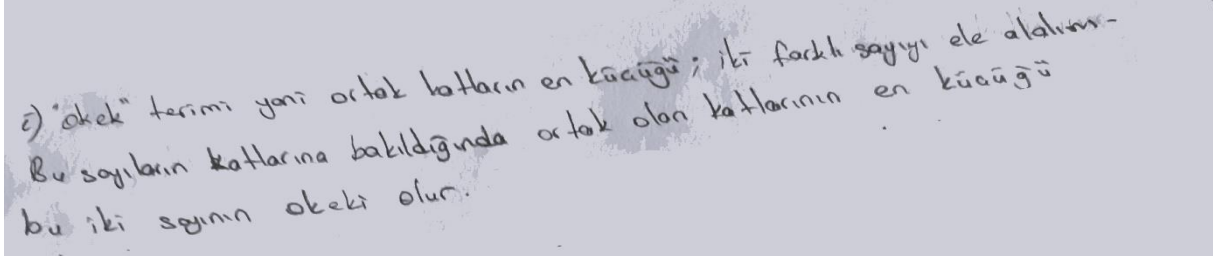 i) "okek" terimi yani ortak katların en küçüğü; iki farklı sayıyı ele alalım.
Bu sayıların katlarına bakıldığında ortak olan katlarının en küçüğü
bu iki sayının okeki olur.